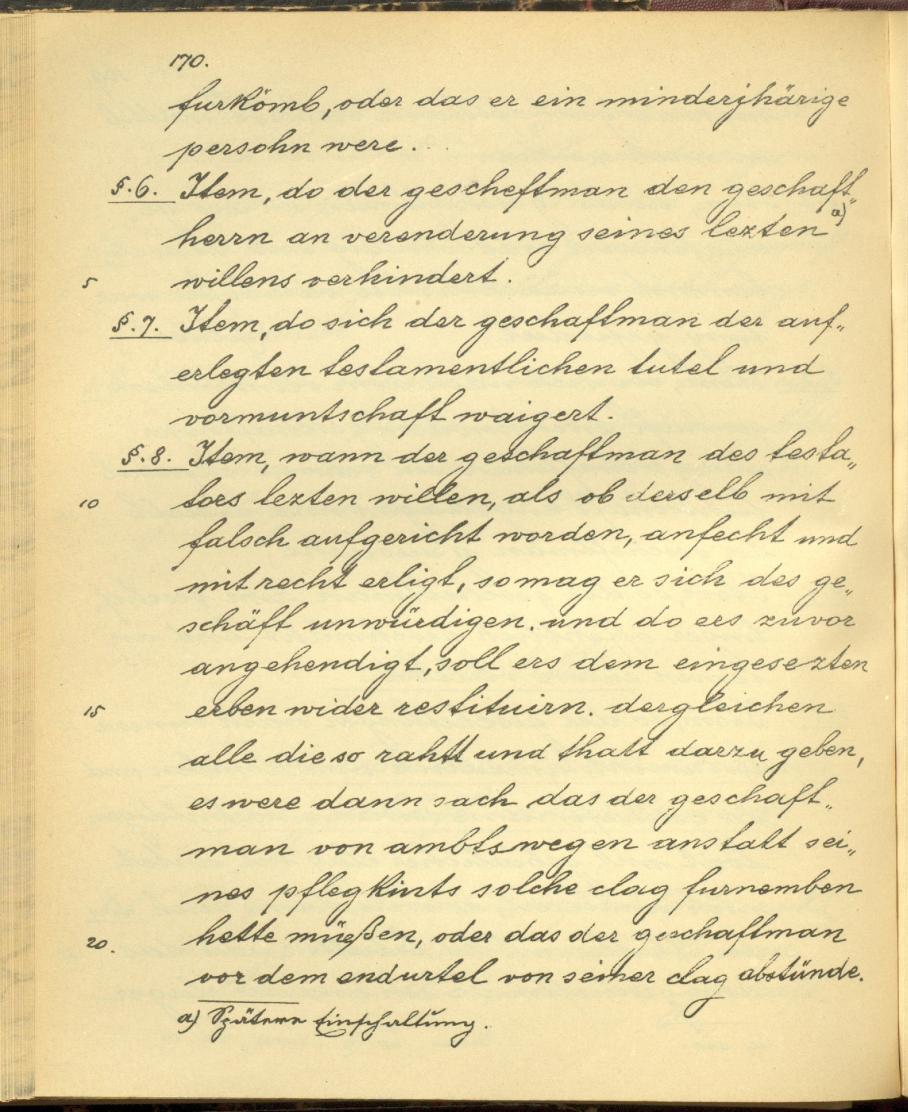 170.
furkömb, oder das er ein minderjhärige
persohn were.
§.6. Item, do der gescheftman den geschaft„
herrn an verenderung seines lezten a)
5 willens verhindert.
§.7. Item, do sich der geschaftman der auf„
erlegten testamentlichen tutel und
vormuntschaft waigert.
§.8. Item, wann der geschaftman des testa„
10 tors lezten willen, als ob derselb mit
falsch aufgericht worden, anfecht und
mit recht erligt, so mag er sich des ge„
schäft unwürdigen. und do ers zuvor
angehendigt, soll ers dem eingesezten
15 erben wider restituirn. dergleichen
alle die so rahtt und thatt darzu geben,
es were dann sach das der geschaft„
man von ambtswegen anstatt sei„
nes pflegkints solche clag furnemben
20. hette müeßen, oder das der geschaftman
vor dem endurtel von seiner clag abstünde.
a) Spätere Einschaltung.